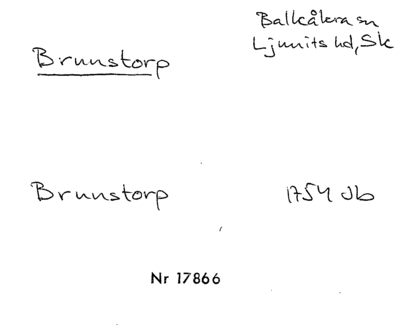 Balkåkra sn
Ljunits hd, Sk
Brunnstorp
Brunnstorp 1754 Jb
Nr 17866